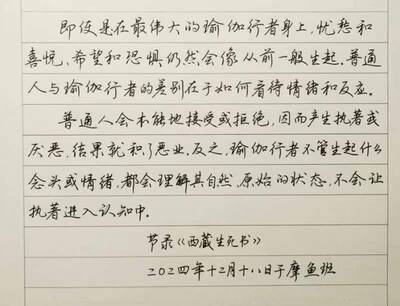 即使是在最伟大的瑜伽行者身上，忧愁和
喜悦、希望和恐惧仍然会像从前一般生起。普通
人与瑜伽行者的差别在于如何看待情绪和反应。
普通人会本能地接受或拒绝，因而产生执著或
厌恶，结果就积了恶业。反之，瑜伽行者不管生起什么
念头或情绪，都会理解其自然、原始的状态，不会让
执著进入认知中。
节录《西藏生死书》
二〇二四年十二月十八日于摩鱼班